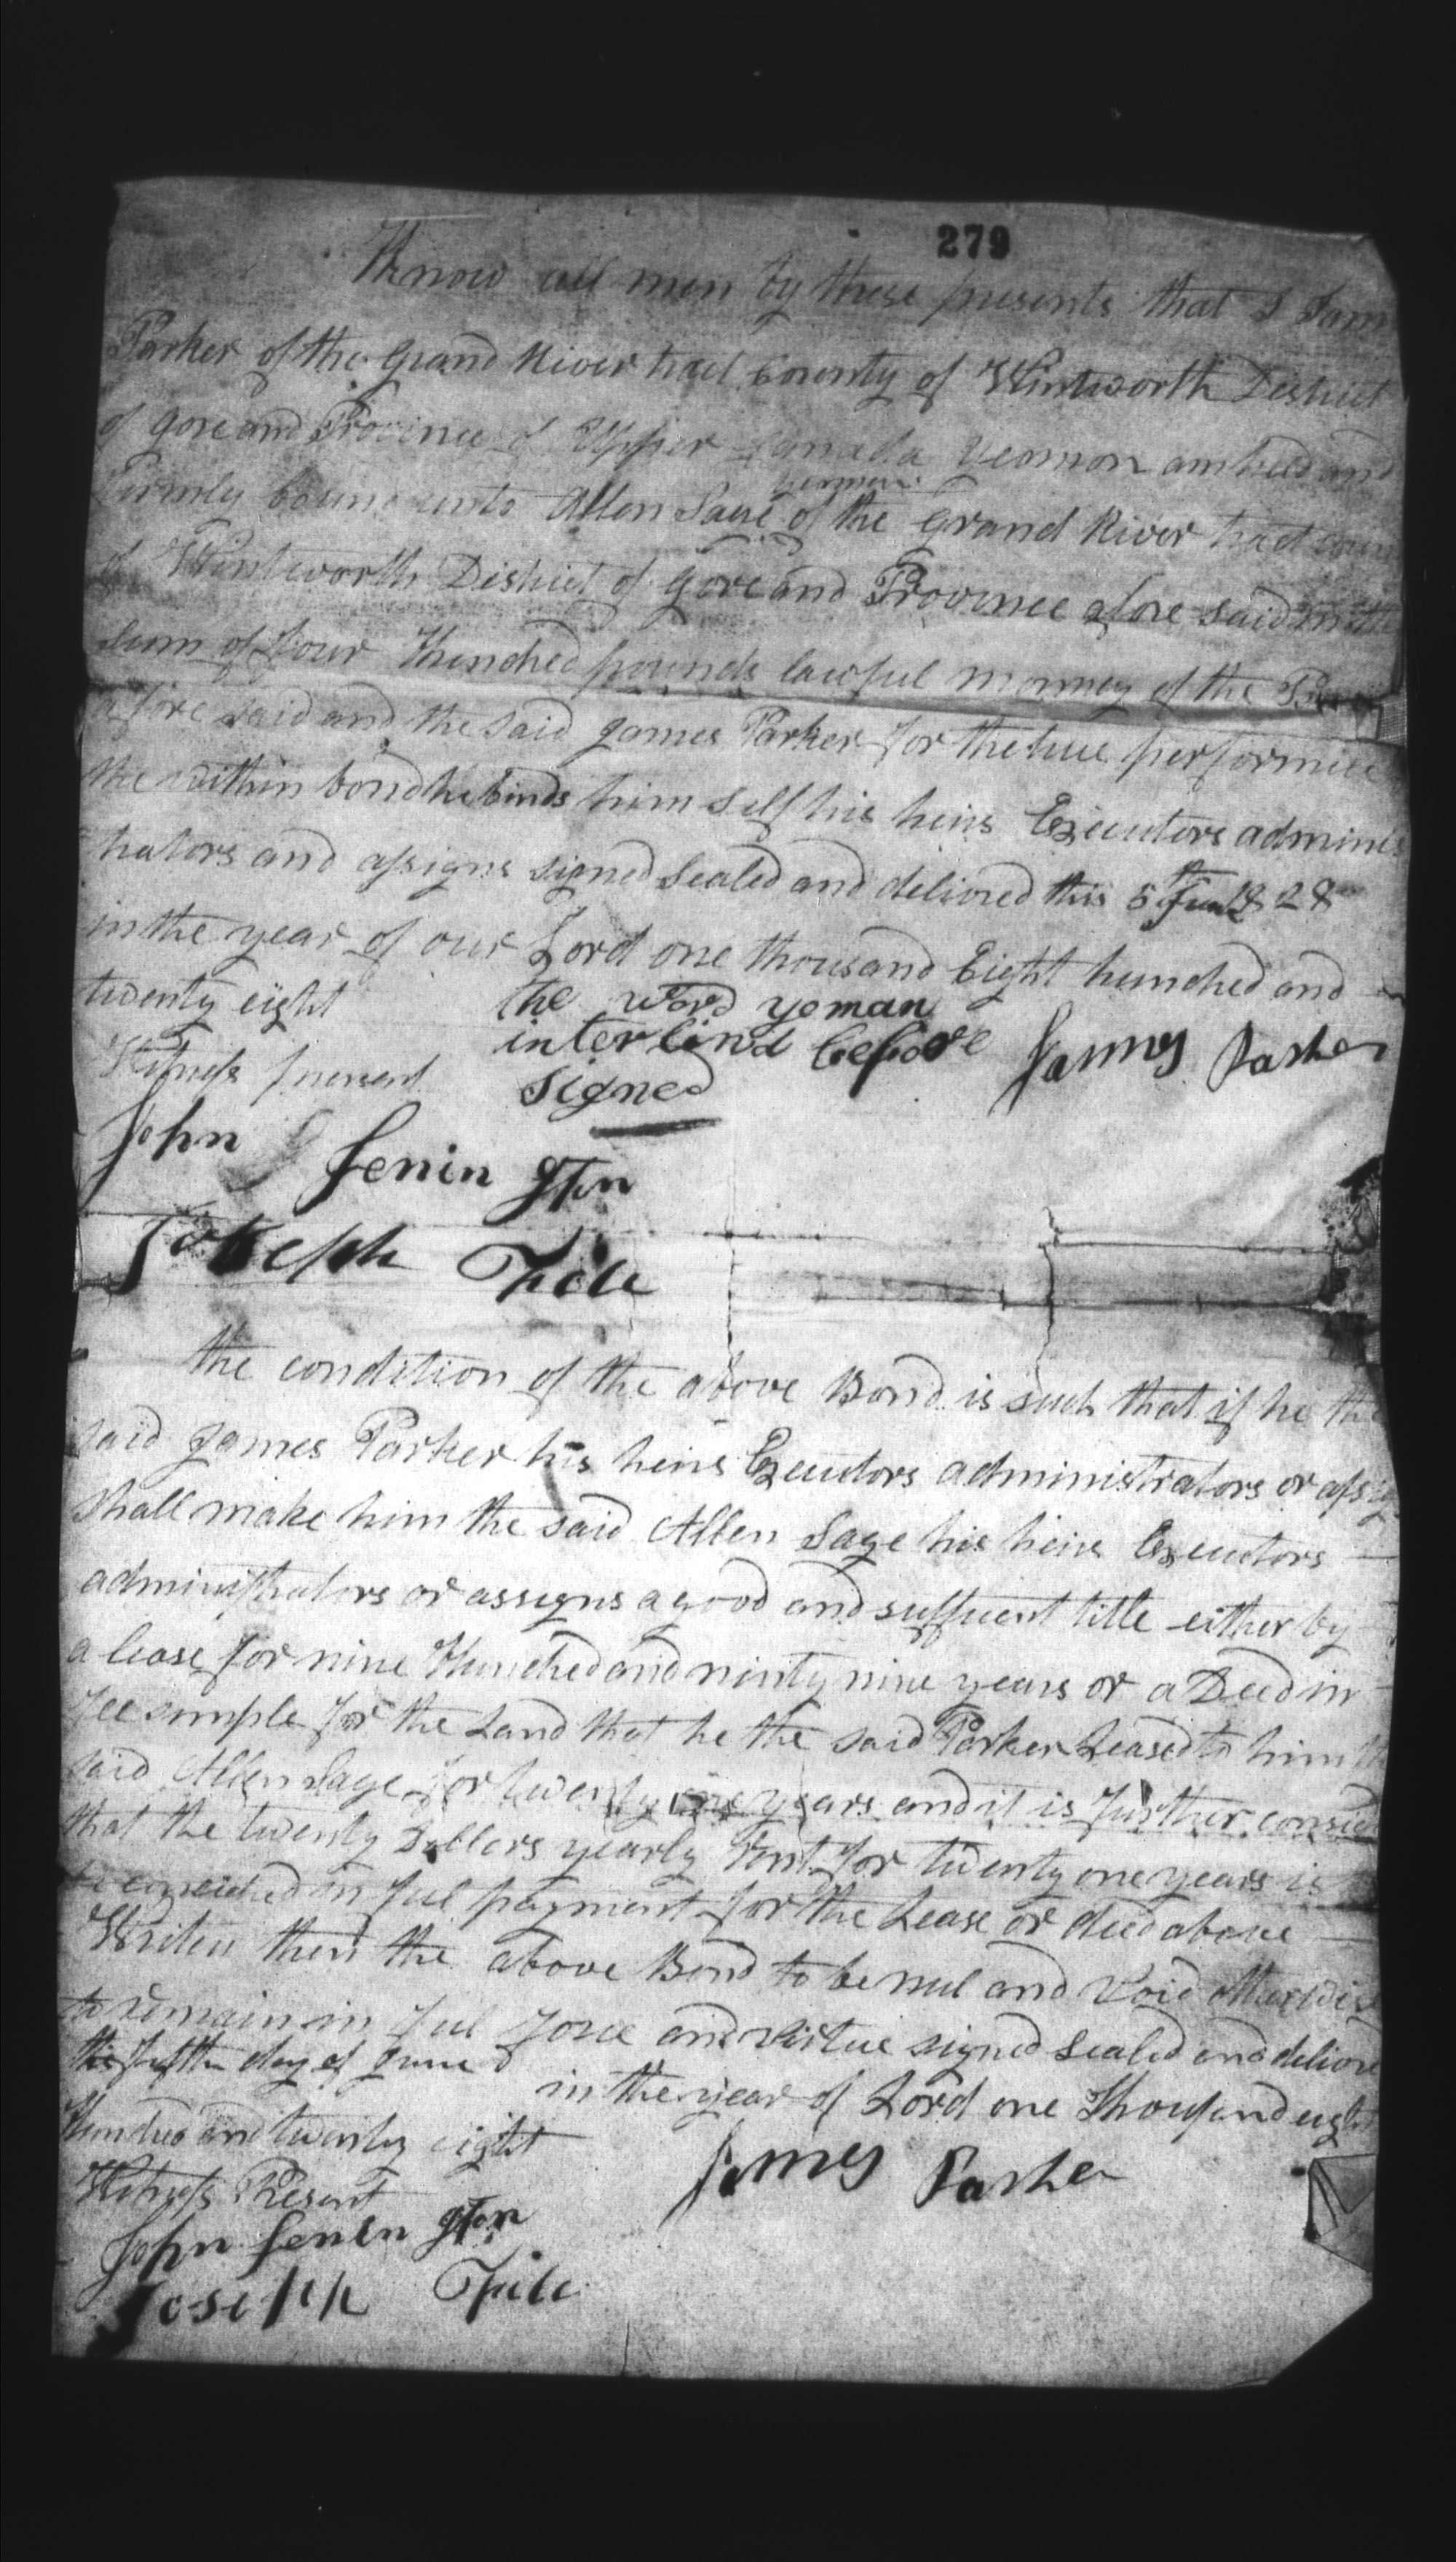 279
Know all men by these presents that I Jam
Parker of the Grand River tract County of Wintworth District
of Gore and Province of Upper Canada Yeomon am held and
yeomon
firmly bound unto Allen Sage of the Grand River tract coun
of Wintworth District of Gore and Province afore said in the
sum of four Hundred pounds lawful monney of the Prov
afore said and the said James Parker for the true performince
the within bond he binds him self his heirs Executors adminis
trators and assigns signed sealed and delivred this 5th June 1828
in the year of our Lord one thousand Eight hundred and
twenty eight
the word yoman
interlind before
signed
James Parker
Witness present
John Senington
Joseph File
the condition of the above Bond is such that if he the
said James Parker his heirs Executors administrators or assig
shall make him the said Allen Sage his heirs Executors
administrators or assigns a good and suffient title either by
a lease for nine Hundred and ninty nine years or a Deed in
fee simple for the Land that he the said Parker Leased to him th
said Allen Sage for twenty one years and it is further consid
that the twenty Dollers yearly Rent for twenty one years is
in ful payment for the Lease or deed above
Writen then the above Bond to be nul and Void otherwise
to remain in ful force and virtue signed sealed and delivre
the fifth day of June
in the year of Lord one Thousand eight
Hundred and twenty eight
James Parker
Witness Present
John Senington
Joseph File